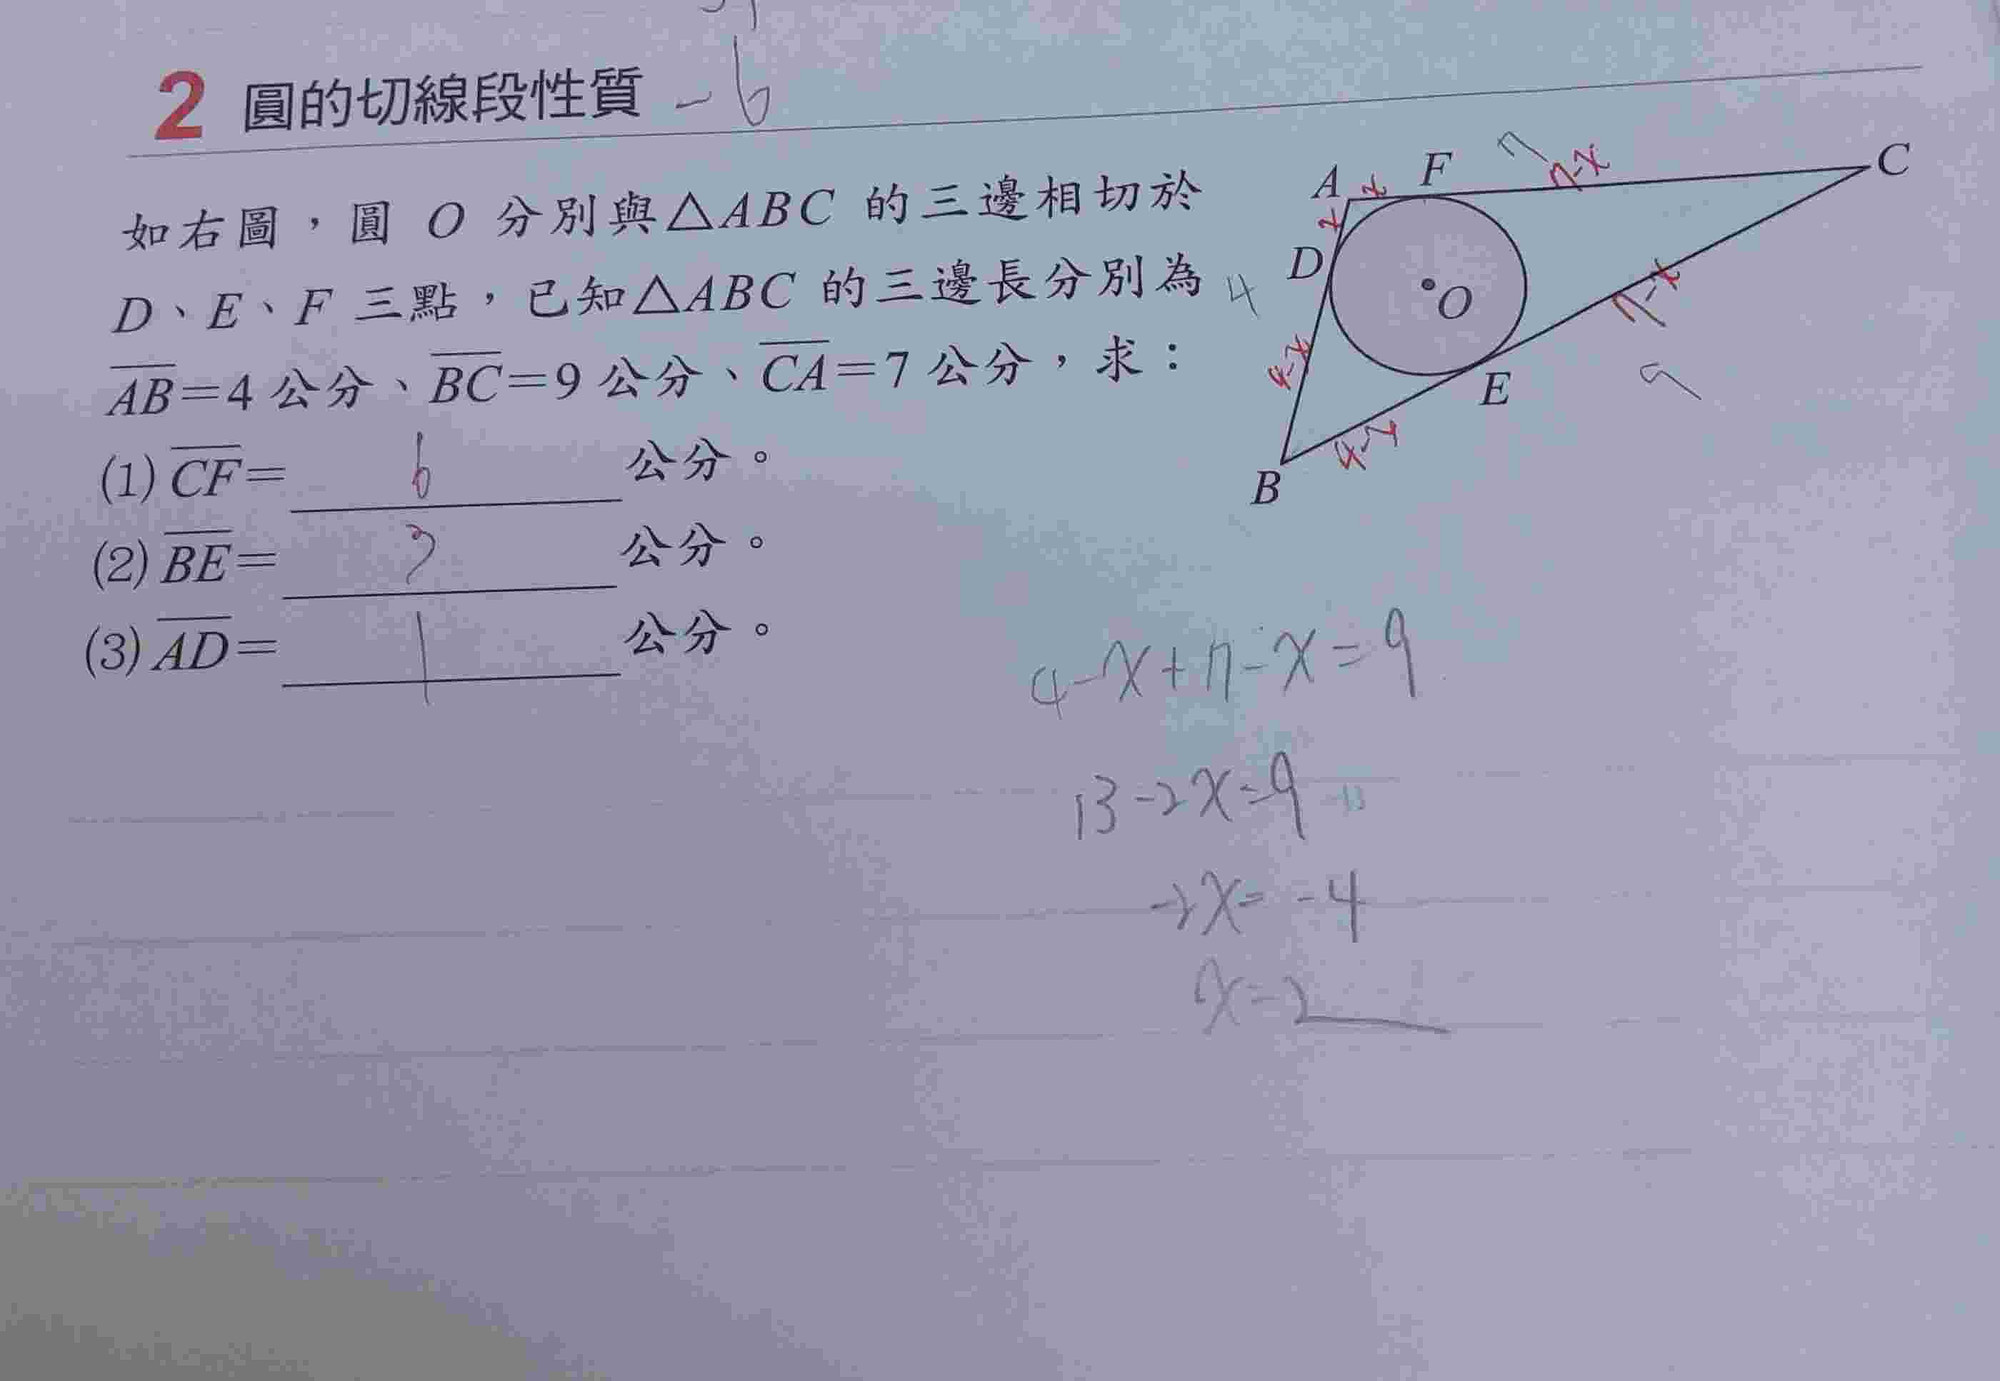 2 圓的切線段性質 -6
如右圖，圓 O 分別與△ABC 的三邊相切於
D、E、F 三點，已知△ABC 的三邊長分別為
AB=4 公分、BC=9 公分、CA=7 公分，求：
(1) CF= 6 公分。
(2) BE= 3 公分。
(3) AD= 1 公分。
A x F 7 7-x C
x
D
4
O
7-x
4-x
E
9
4-x
B
4-x+7-x=9
13-2x=9 -13
-2x=-4
x=2